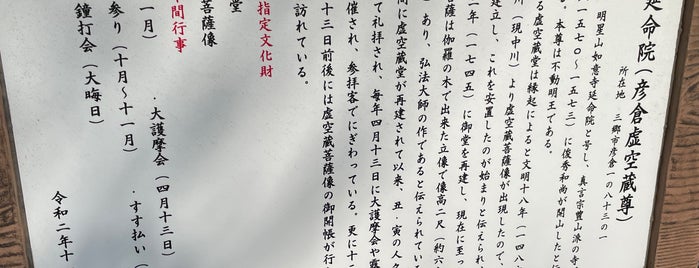 延命院（彦倉虚空蔵尊）
所在地　三郷市彦倉一の八十三の一
明星山　如意寺延命院と号し、真言宗豊山派の寺
一五七〇～一五七三）に俊秀和尚が開山したと
。本尊は不動明王である。
る虚空蔵堂は縁起によると文明十八年（一四八
川（現中川）より虚空蔵菩薩像が出現したので、
建立し、これを安置したのが始まりと伝えられ
二年（一七四五）に御堂を再建し、現在に至っ
薩は伽羅の木で出来た立像で像高二尺（約六
）あり、弘法大師の作であると伝えられている
間に虚空蔵堂が再建されて以来、丑・寅の人々
て礼拝され、毎年四月十三日に大護摩会や
催され、参拝客でにぎわっている。更に十三
十三日前後には虚空蔵菩薩像の御開帳が行
訪れている。
指定文化財
堂
菩薩像
間行事
一月）　・大護摩会（四月十三日）
参り（十月～十一月）　・すす払い（
鐘打会（大晦日）
令和二年十